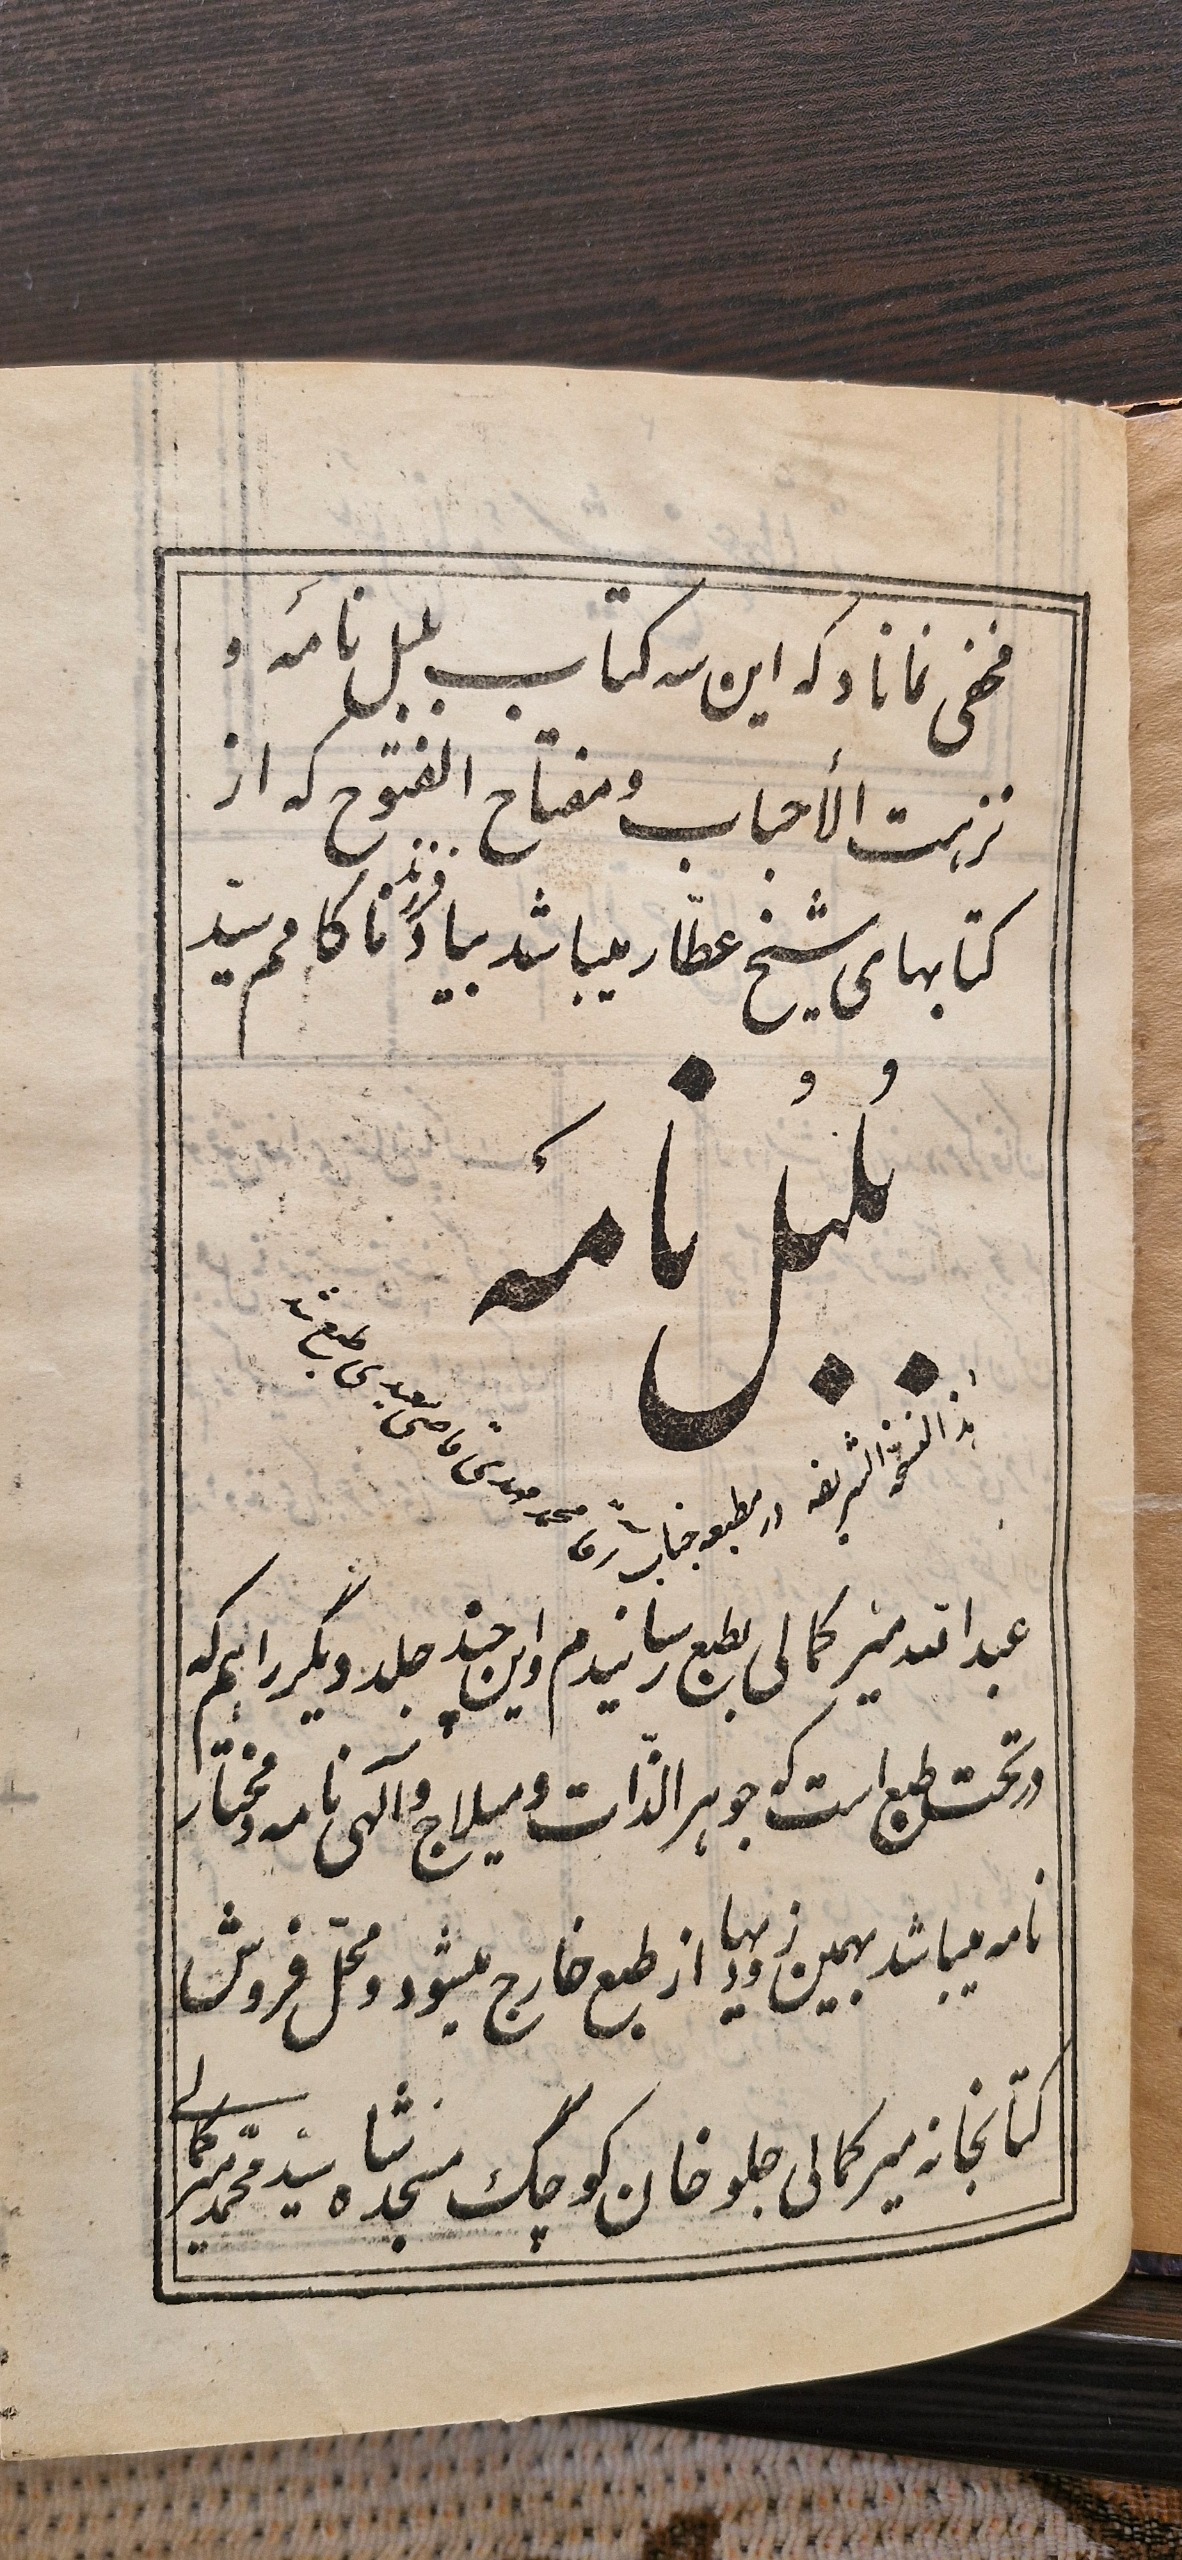 مخفی نماناد که این سه کتاب بلبل نامه و
نزهت الأحباب و مفتاح الفتوح که از
کتابهای شیخ عطّار میباشد بیاد فرزند ناکامم سیّد
بُلبُل نامه
هذا النسخة الشریفه در مطبعه جناب آقا محمد مهدی قاضی سعیدی طبع شد
عبدالله میر کمالی بطبع رسانیدم و این چند جلد دیگر را هم که
در تحت طبع است که جوهر الذّات و میلاج و آلهی نامه و مختار
نامه میباشد بهمین زودیها از طبع خارج میشود و محلّ فروش
کتابخانه میر کمالی جلو خان کوچک مسجد شاه سیّد محمّد میر کمالی